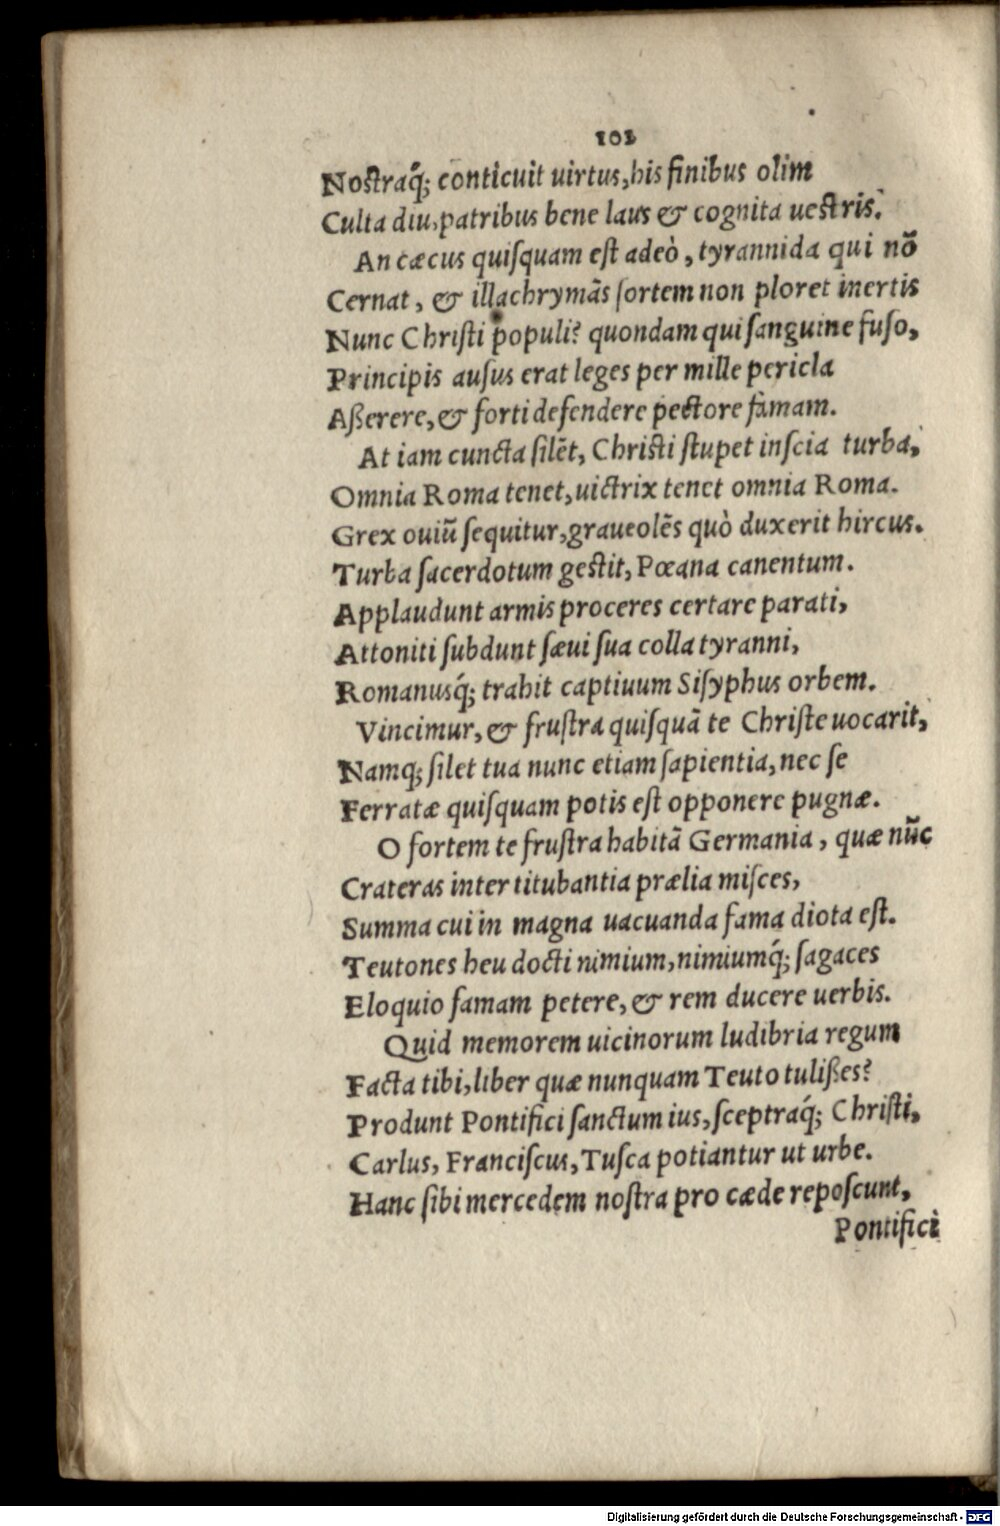 102
Nostraq́; conticuit uirtus, his finibus olim
Culta diu, patribus bene laus & cognita uestris.
An cæcus quiſquam eſt adeò, tyrannida qui nō
Cernat, & illachrymās ſortem non ploret inertis
Nunc Chriſti populi? quondam qui ſanguine fuſo,
Principis auſus erat leges per mille pericla
Aßerere, & forti defendere pectore famam.
At iam cuncta ſilēt, Chriſti ſtupet inſcia turba,
Omnia Roma tenet, uictrix tenet omnia Roma.
Grex ouiū ſequitur, graueolēs quò duxerit hircus.
Turba ſacerdotum gestit, Pœana canentum.
Applaudunt armis proceres certare parati,
Attoniti ſubdunt ſæui ſua colla tyranni,
Romanusq́; trahit captiuum Siſyphus orbem.
Vincimur, & fruſtra quiſquā te Chriſte uocarit,
Namq; ſilet tua nunc etiam ſapientia, nec ſe
Ferratæ quiſquam potis eſt opponere pugnæ.
O fortem te fruſtra habitā Germania, quæ nūc
Crateras inter titubantia prælia miſces,
Summa cui in magna uacuanda fama diota eſt.
Teutones heu docti nimium, nimiumq́; ſagaces
Eloquio famam petere, & rem ducere uerbis.
Quid memorem uicinorum ludibria regum
Facta tibi, liber quæ nunquam Teuto tulißes?
Produnt Pontifici ſanctum ius, ſceptraq́; Chriſti,
Carlus, Franciſcus, Tuſca potiantur ut urbe.
Hanc ſibi mercedem noſtra pro cæde repoſcunt,
Pontifici
Digitalisierung gefördert durch die Deutsche Forschungsgemeinschaft - DFG